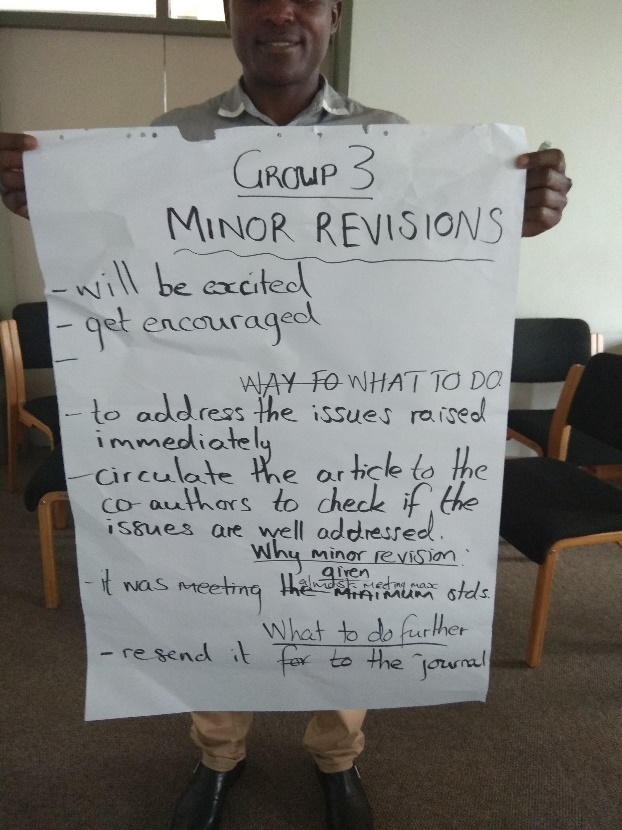 GROUP 3
MINOR REVISIONS
- will be excited
- get encouraged
-
WAY FO WHAT TO DO
- to address the issues raised
immediately
- circulate the article to the
co-authors to check if the
issues are well addressed.
Why minor revision:
given
almost meeting max
- it was meeting the MINIMUM stds.
What to do further
- resend it for to the journal